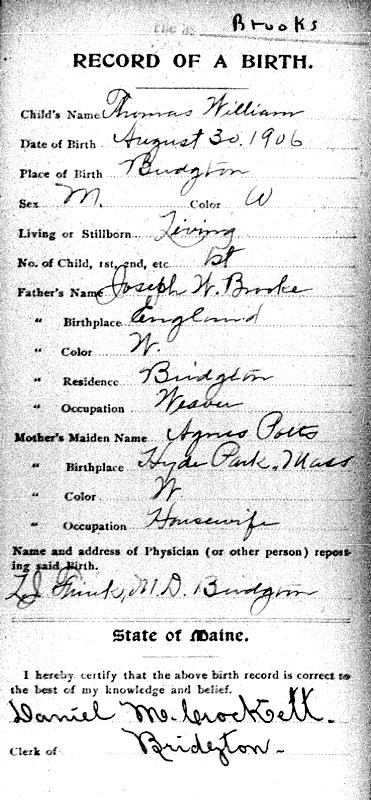 Brooks
RECORD OF A BIRTH.
Child's Name Thomas William
Date of Birth August 30. 1906
Place of Birth Bridgton
Sex M. Color W
Living or Stillborn Living
No. of Child, 1st, 2nd, etc 1st
Father's Name Joseph W. Brooke
" Birthplace England
" Color W.
" Residence Bridgton
" Occupation Weaver
Mother's Maiden Name Agnes Potts
" Birthplace Hyde Park, Mass
" Color W
" Occupation Housewife
Name and address of Physician (or other person) report-
ing said Birth.
M.D. Bridgton
State of Maine.
I hereby certify that the above birth record is correct to
the best of my knowledge and belief.
Daniel M. Crockett.
Clerk of Bridgton-